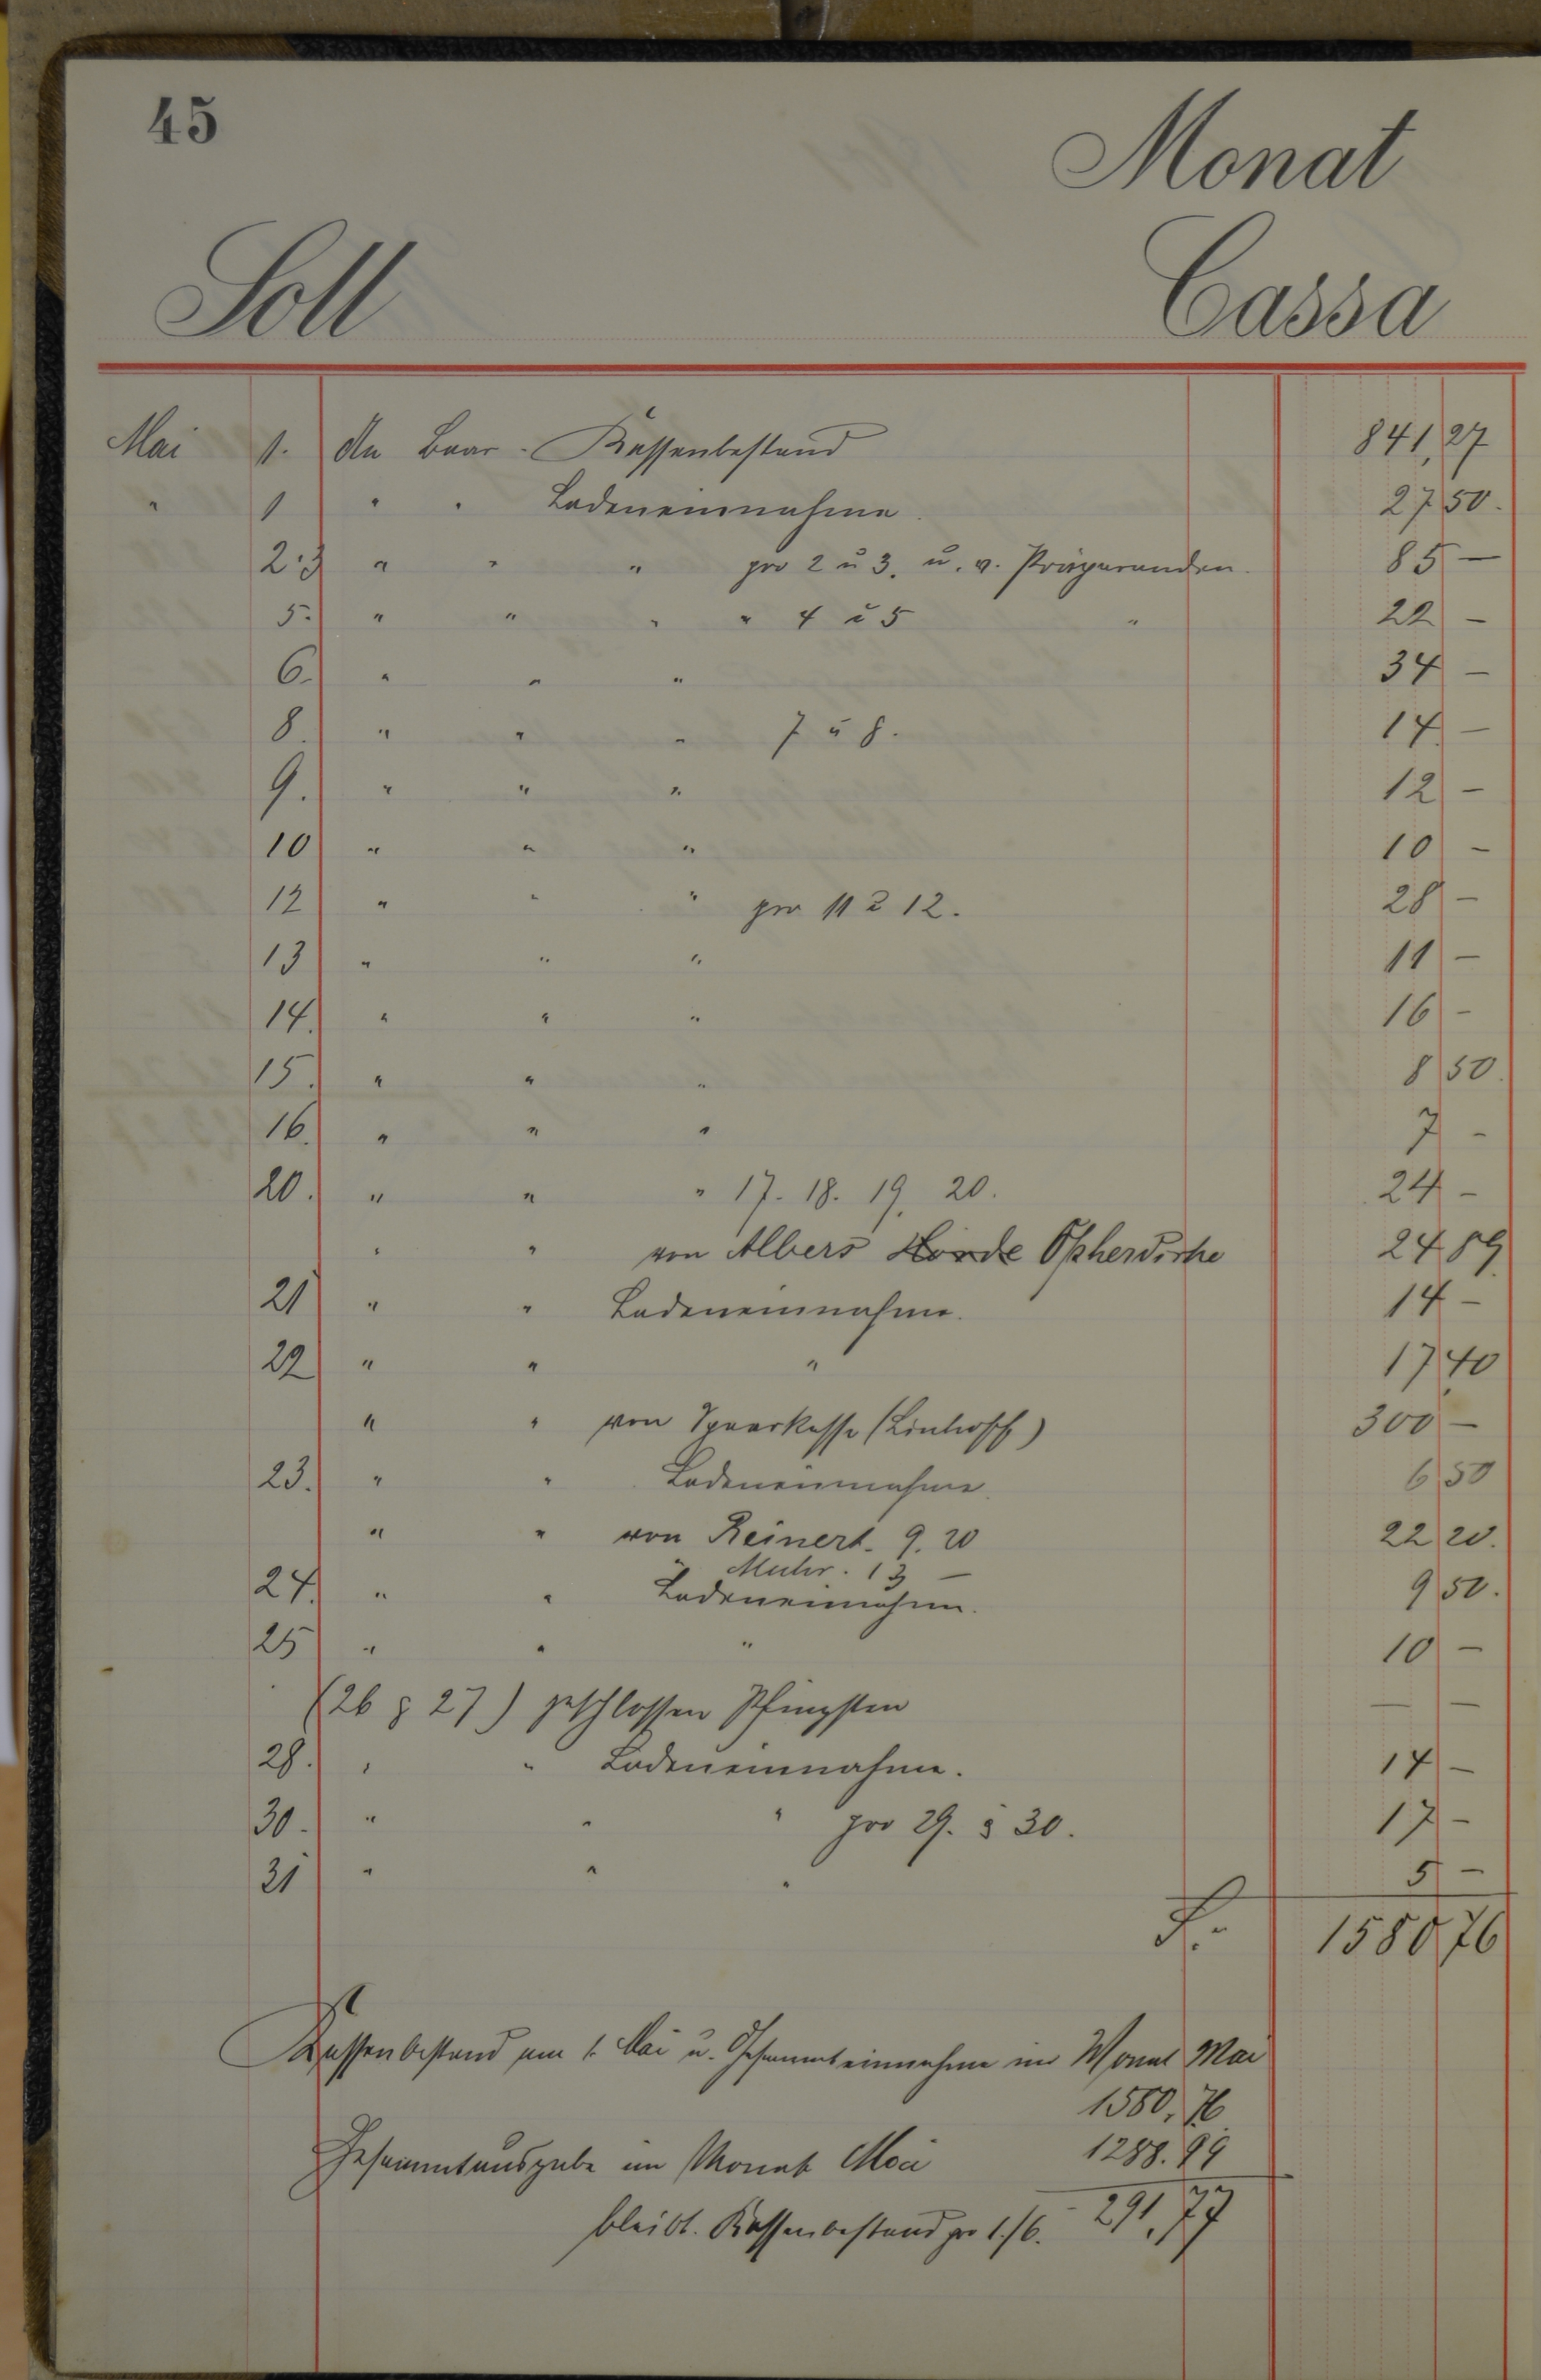 45
Monat
Soll Cassa
Mai 1. An Baar-Kassenbestand 841,27
" 1 " " Ladeneinnahme. 27 50.
2.3 " " " pro 2 u 3. u. v. Präparanden. 85 —
5. " " " " 4 u 5 " 22 —
6. " " " 34 —
8. " " " 7 u 8. 14 —
9. " " " 12 —
10 " " " 10 —
12 " " " pro 11 u 12. 28 —
13 " " " 11 —
14. " " " 16 —
15. " " " 8 50
16. " " " 7 —
20. " " " 17. 18. 19. 20. 24 —
" " von Albers Hörde Opherdicke 24 89
21 " " Ladeneinnahme. 14 —
22 " " " 17 40
" " von Sparkasse (Linhoff) 300 —
23. " " Ladeneinnahme. 6 50
" " von Reinert. 9. 20 22 20.
" Muhr. 13 —
24. " " Ladeneinnahme. 9 50.
25 " " " 10 —
(26 & 27) geschlossen Pfingsten — —
28. " " Ladeneinnahme. 14 —
30. " " " pro 29. & 30. 17 —
31 " " " 5 —
1580 76
Kassenbestand am 1. Mai u. Gesammteinnahme im Monat Mai
1580,76
Gesammtausgabe im Monat Mai 1288.99
bleibt. Kassenbestand pro 1./6. 291,77